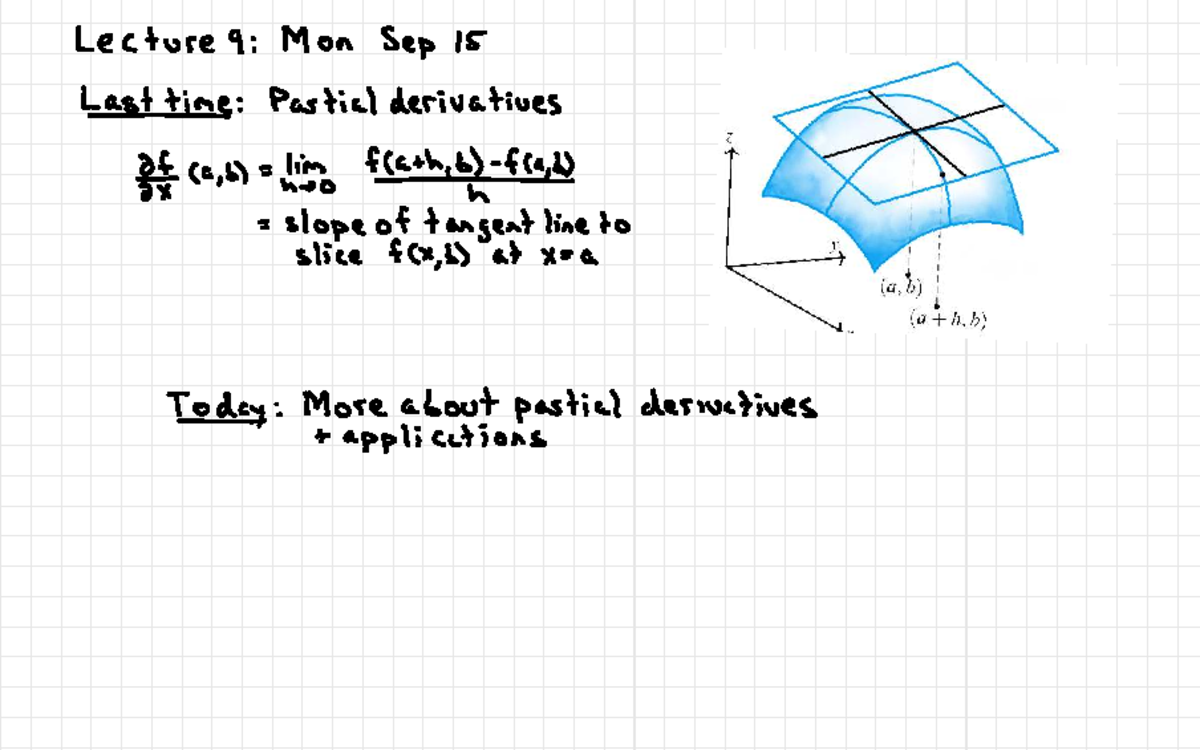 Lecture 9: Mon Sep 15
Last time: Partial derivatives
∂f/∂x (a,b) = lim h→0 f(a+h,b)-f(a,b)/h
= slope of tangent line to
slice f(x,b) at x=a
z
y
(a,b)
(a+h,b)
Today: More about partial derivatives
+ applications